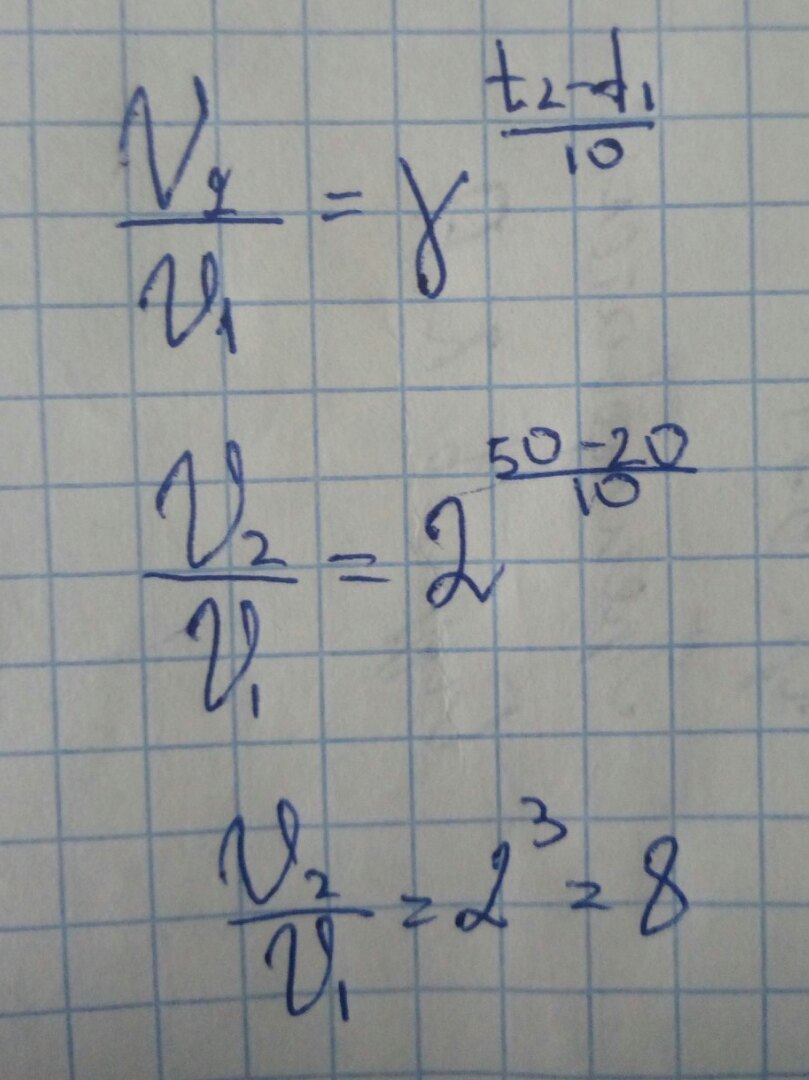 V₂/V₁ = γ^((t₂-t₁)/10)
V₂/V₁ = 2^((50-20)/10)
V₂/V₁ = 2³ = 8